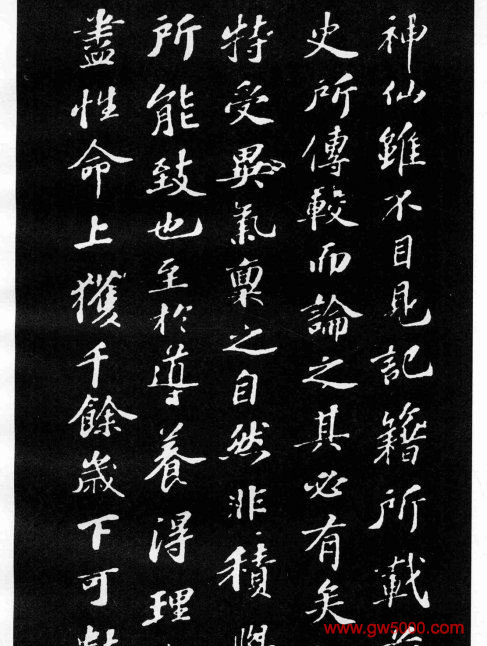 神仙雖不目見記籍所載
史所傳較而論之其必有矣
特受異氣稟之自然非積
所能致也至於導養得理
盡性命上獲千餘歲下可
www.gw5000.com